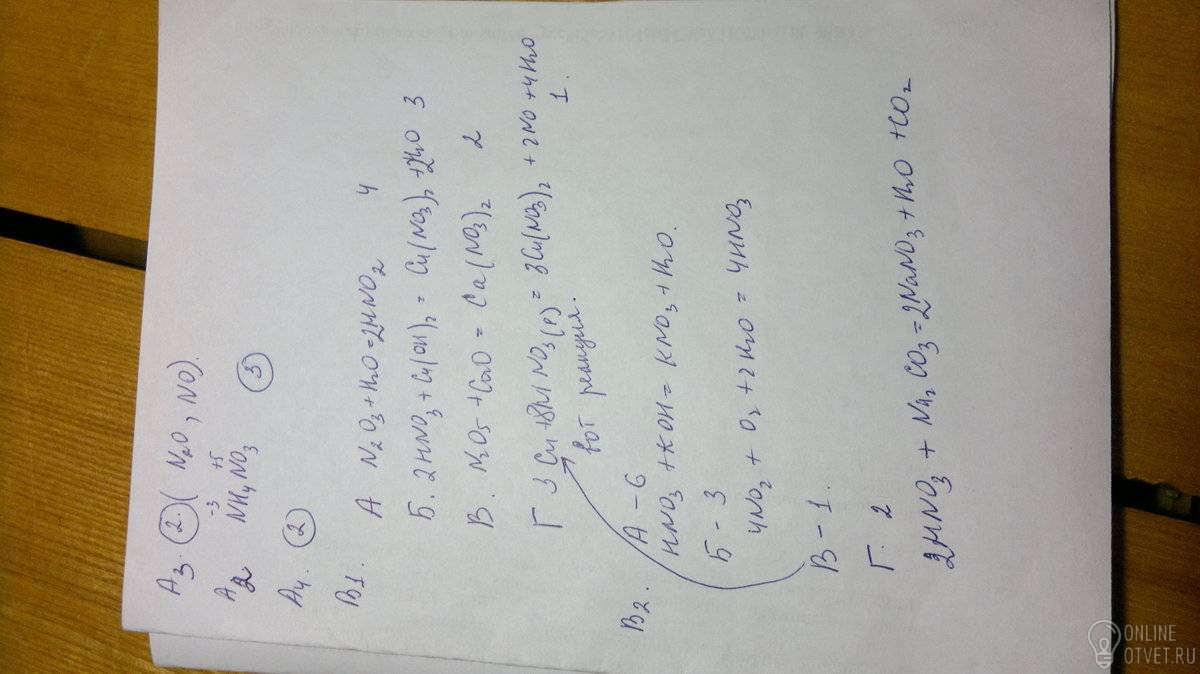 А3. (2.) ( N₂O, NO).
А2 N⁻³H₄N⁺⁵O₃ (3)
А4. (2)
В1. А N₂O₃ + H₂O = 2HNO₂ 4
Б. 2HNO₃ + Cu(OH)₂ = Cu(NO₃)₂ + 2H₂O 3
В. N₂O₅ + CaO = Ca(NO₃)₂ 2
Г 3Cu + 8HNO₃(р) = 3Cu(NO₃)₂ + 2NO + 4H₂O
1.
вот реакция.
В2. А – 6
HNO₃ + KOH = KNO₃ + H₂O.
Б – 3
4NO₂ + O₂ + 2H₂O = 4HNO₃
В – 1.
Г. 2
2HNO₃ + Na₂CO₃ = 2NaNO₃ + H₂O + CO₂
ONLINE
OTVET.RU